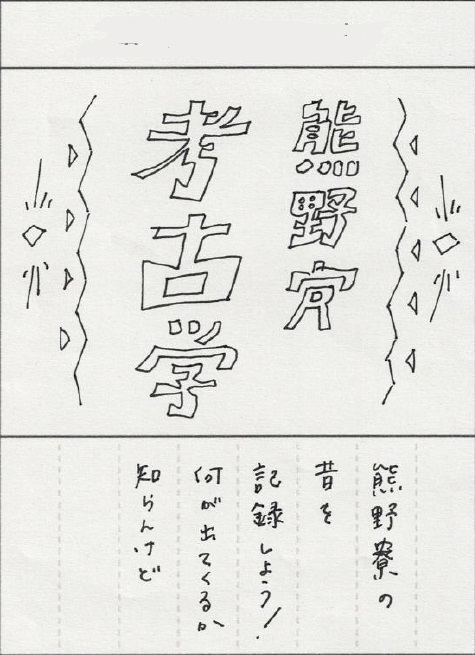 熊野寮
考古学
熊野寮の
昔を
記録しよう!
何が出てくるか
知らんけど